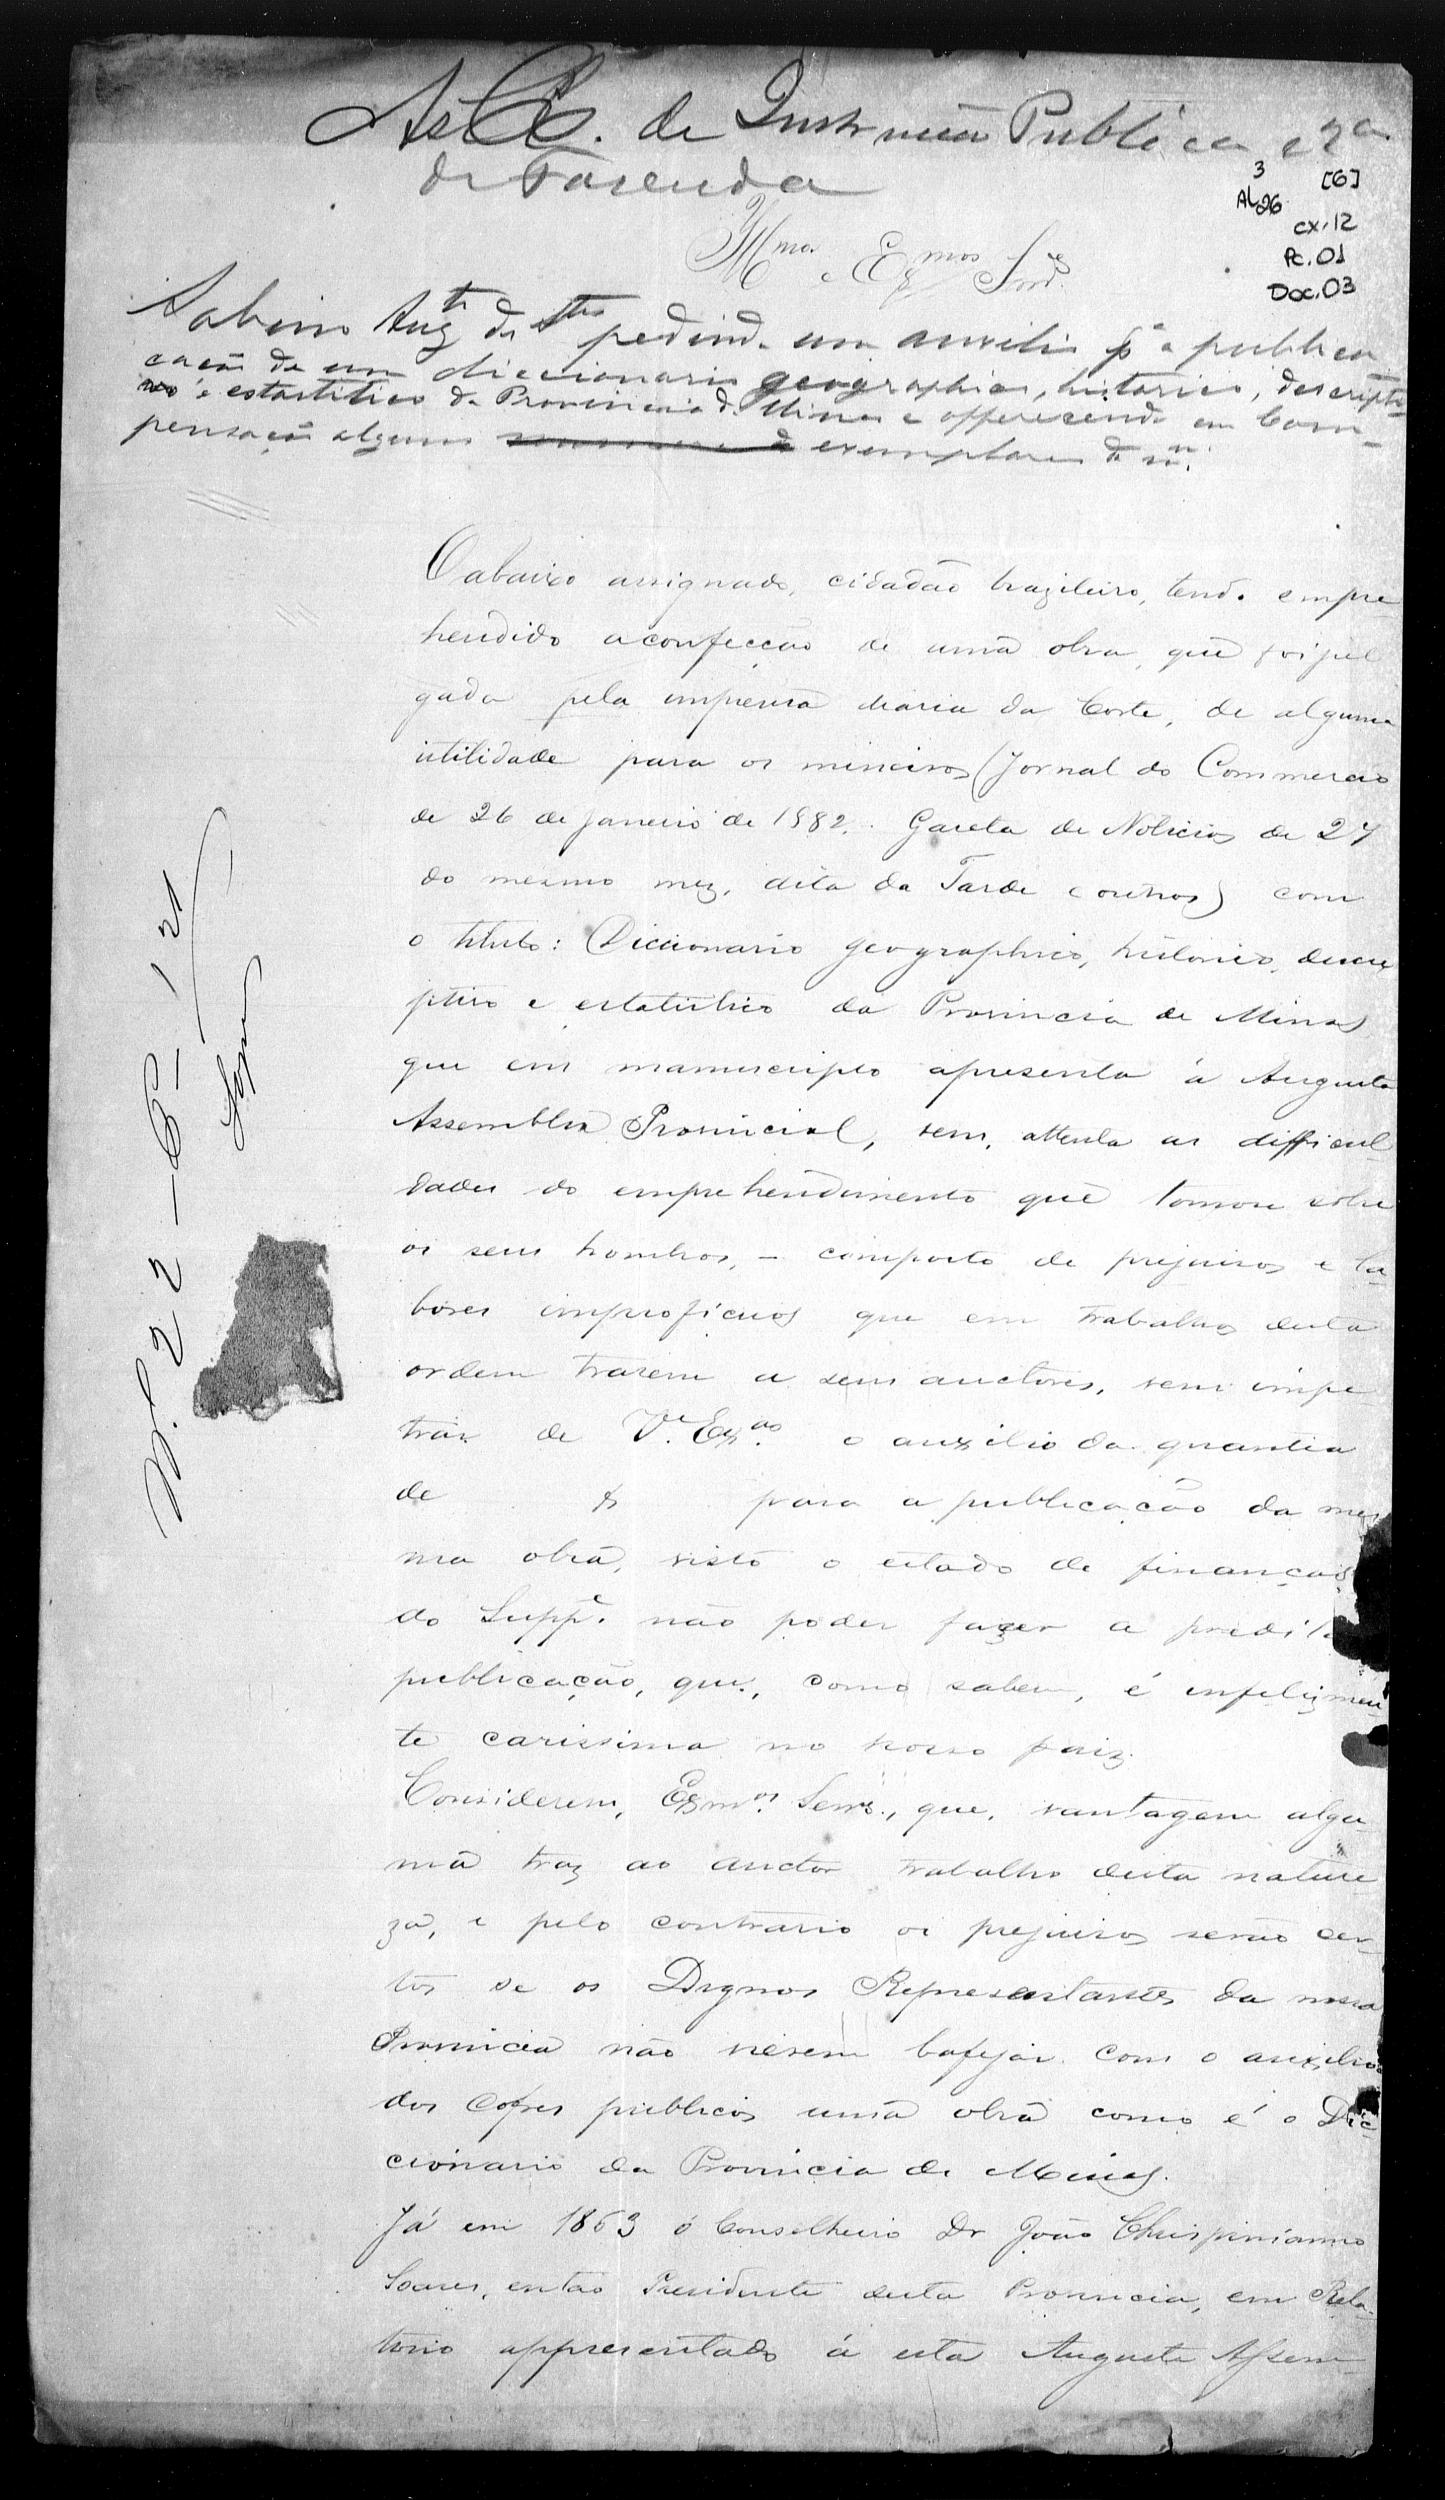 Ás CC. de Instrucção Publica e 2ª
de Fazenda
3 [6]
AL26
cx.12
Pc.01
Doc.03
Illmos. e Exmos Snrs.
Sabino pedindo um auxilio pª a publica
cação de um diccionario geographico, historico, descripti
vo e estastitico da Provincia de Minas e offerecendo em com-
pensação alguns exemplares do mmo.
O abaixo assignado, cidadão brazileiro, tendo empre
hendido a confecção de uma obra, que foi jul
gada pela imprensa diaria da Corte, de alguma
utilidade para os mineiros (Jornal do Commercio
de 26 de Janeiro de 1882. Gazeta de Noticias de 27
do mesmo mez, dita da Tarde e outros) com
o titulo: Diccionario geographico, historico, descri
ptivo e estatistico da Provincia de Minas
que em manuscripto apresenta á Augusta
Assemblea Provincial, vem, attenta as difficul-
dades do emprehendimento que tomou sobre
os seus hombros, – composto de prejuisos e la-
bores improficuos que em trabalhos desta
ordem trazem a seus auctores, vem impe
trar de V. Exas. o auxilio da quantia
de $ para a publicação da mes
ma obra, visto o estado de finanças
do Suppe. não poder fazer a predita
publicação, que, como sabem, é infelizmen
te carissima no nosso paiz.
Considerem, Exmos. Senrs., que, vantagem algu-
ma traz ao auctor trabalho desta nature
za, e pelo contrario os prejuisos serão cer-
tos se os Dignos Representantes da nossa
Provincia não vierem bafejar com o auxilio
dos cofres publicos uma obra como é o Dic-
cionario da Provincia de Minas.
Já em 1863 o Conselheiro Dr João Chrispinianno
Soares, então Presidente desta Provincia, em Rela-
torio appresentado á esta Augusta Assem-